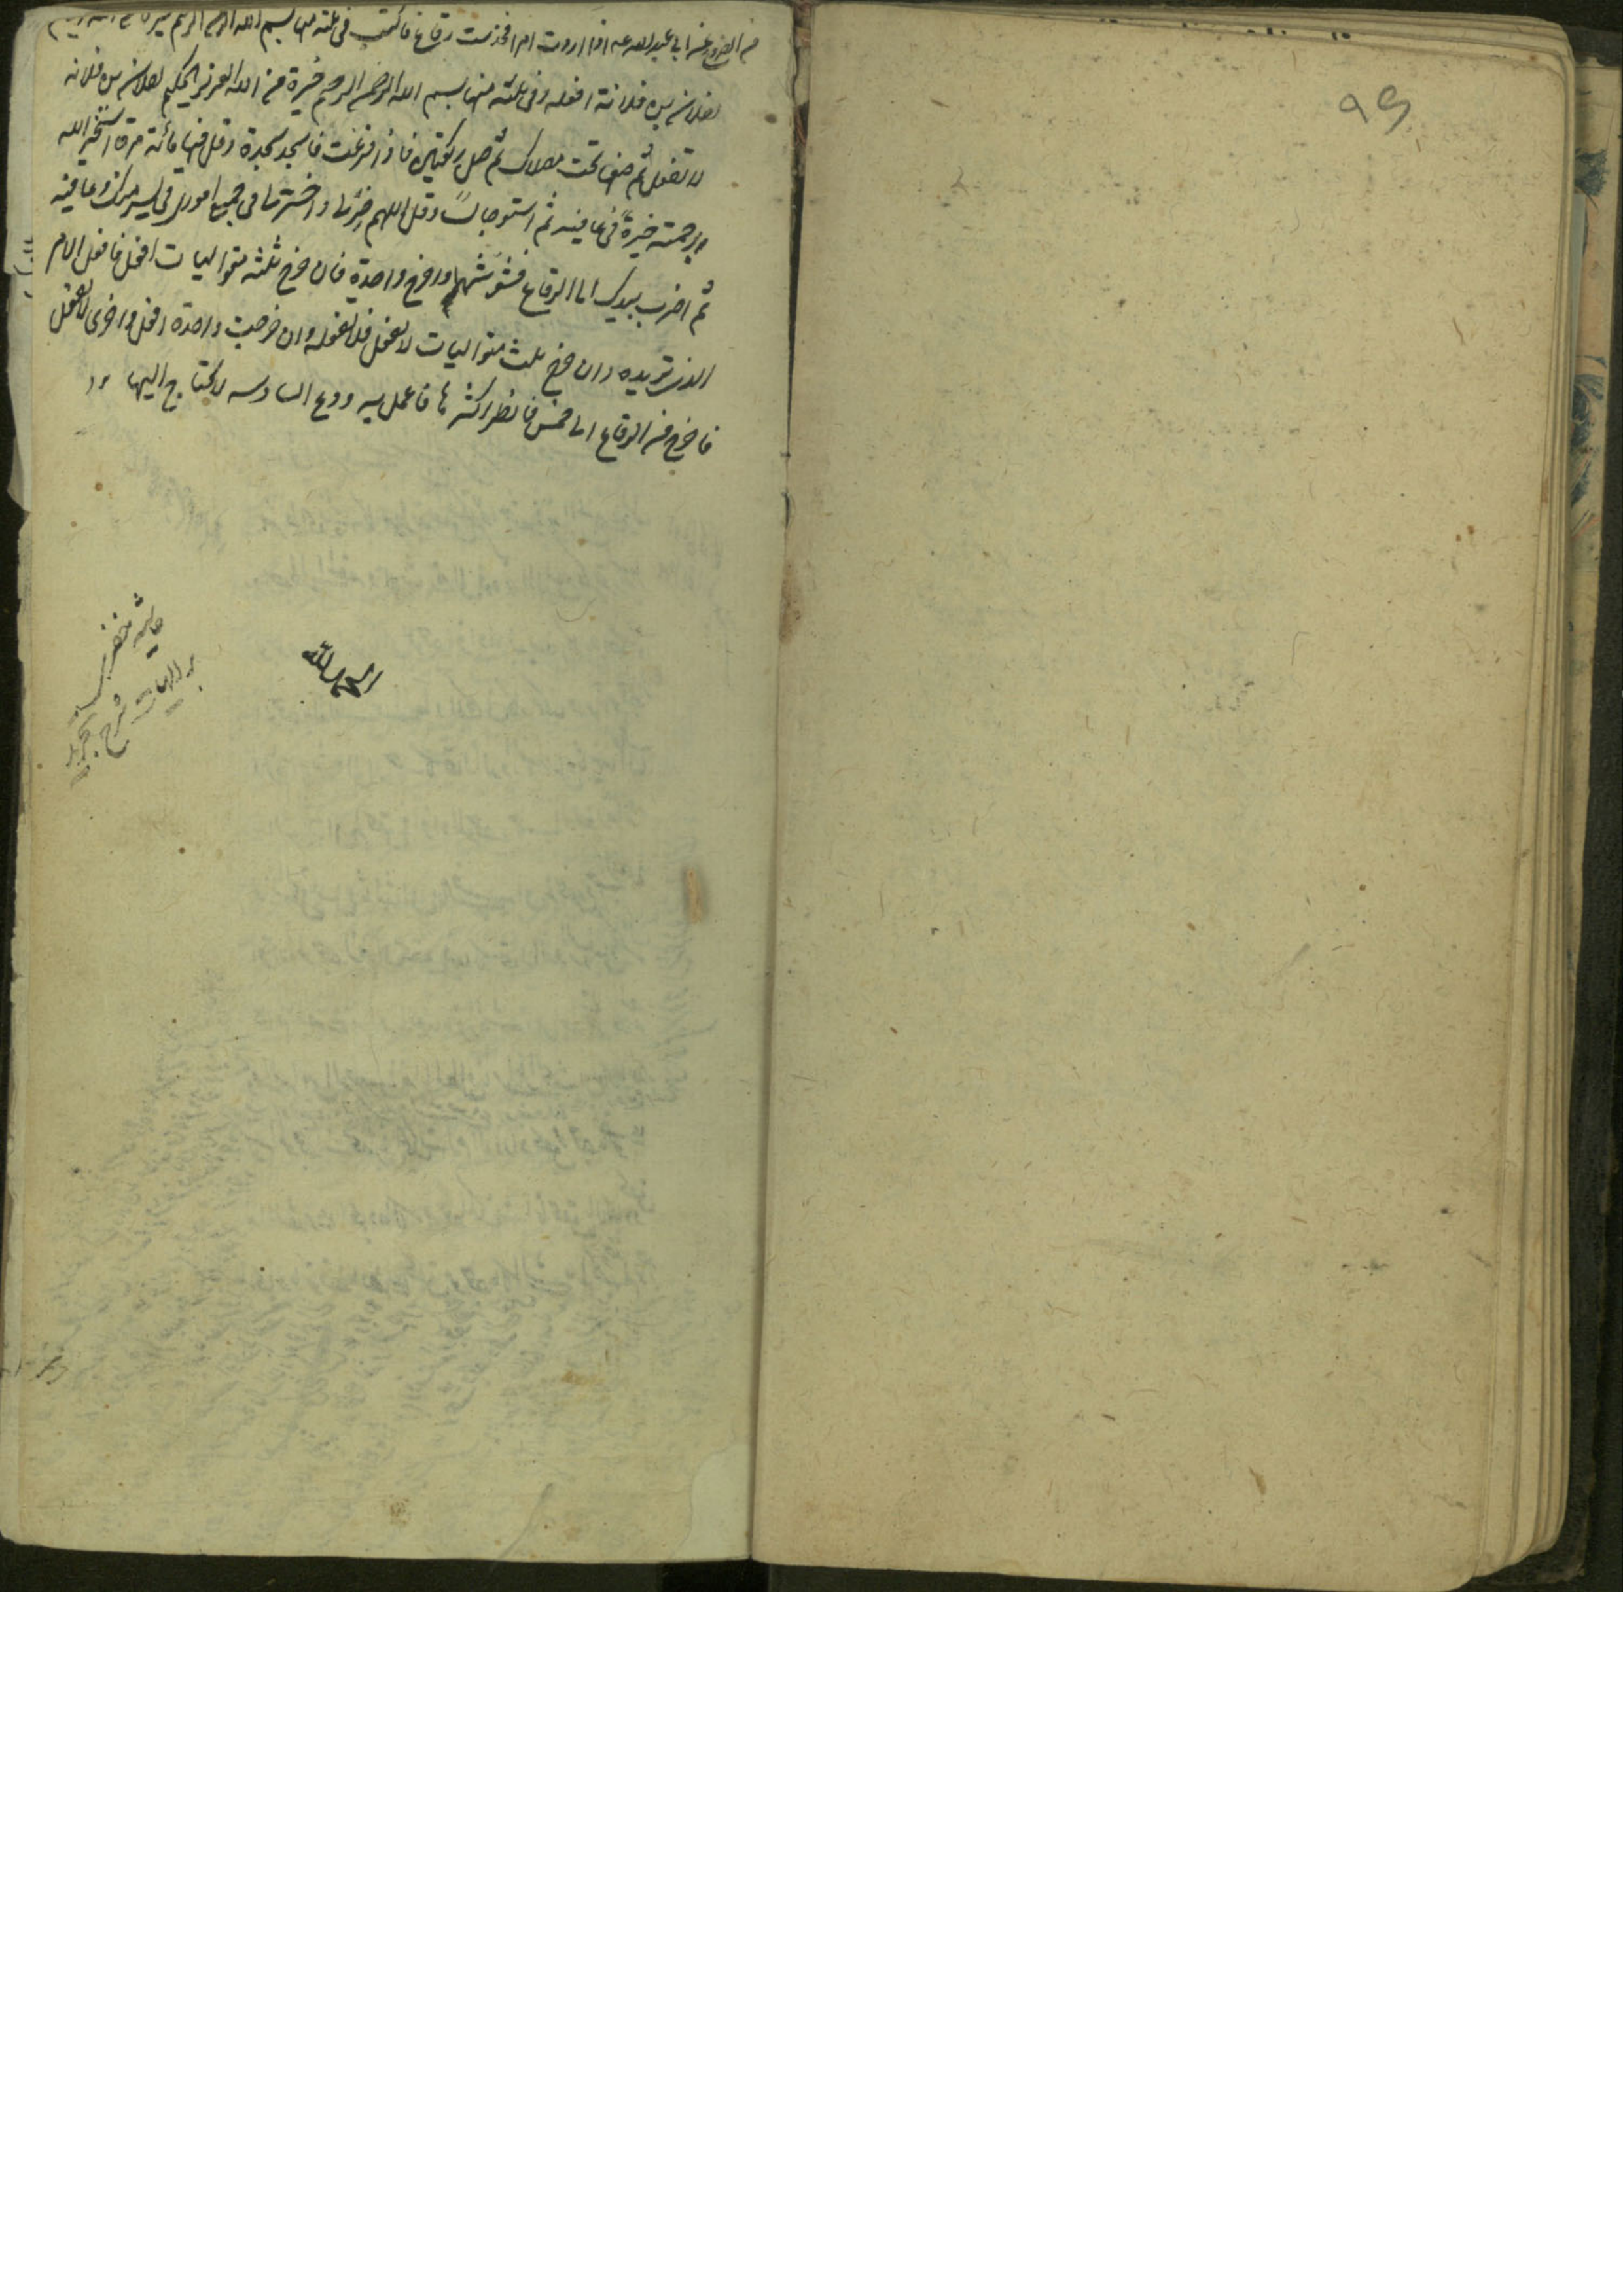 عن ابي عبد الله عه اذا اردت امرا فخذ ست رقاع فاكتب في ثلثة منها بسم الله الرحمن الرحيم خيرة من الله
لفلان بن فلانة افعله وفي ثلثة منها بسم الله الرحمن الرحيم خيرة من الله العزيز الحكيم لفلان بن فلانه
لا تفعل ثم ضعها تحت مصلاك ثم صل ركعتين فاذا فرغت فاسجد سجدة وقل فيها مائة مرة استخير الله
برحمته خيرة في عافيه ثم استو جالسا وقل اللهم خر لي واختر لي في جميع اموري في يسر منك وعافيه
ثم اضرب بيدك الى الرقاع فشوشها واخرج واحدة فان خرج ثلثه متواليات افعل فافعل الامر
الذي تريده وان خرج ثلث متواليات لا تفعل فلا تفعله وان خرجت واحدة افعل واخرى لا تفعل
فاخرج من الرقاع الى خمس فانظر اكثرها فاعمل به ودع السادسه لا تحتاج اليها
الحمد لله
حاشيه خفرى
بر الهيات
شرح تجريد
٩٩